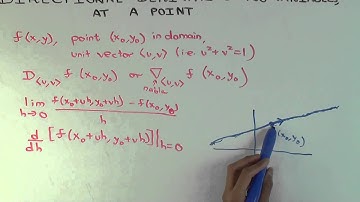 AT A POINT
f(x,y), point (x₀,y₀) in domain,
unit vector ⟨u,v⟩ (i.e. u²+v²=1)
D⟨u,v⟩ f (x₀,y₀) or ∇⟨u,v⟩ f (x₀,y₀)
nabla
lim h→0 f(x₀+uh,y₀+vh) - f(x₀,y₀) / h
d/dh [f(x₀+uh,y₀+vh)]|h=0
(x₀,y₀)